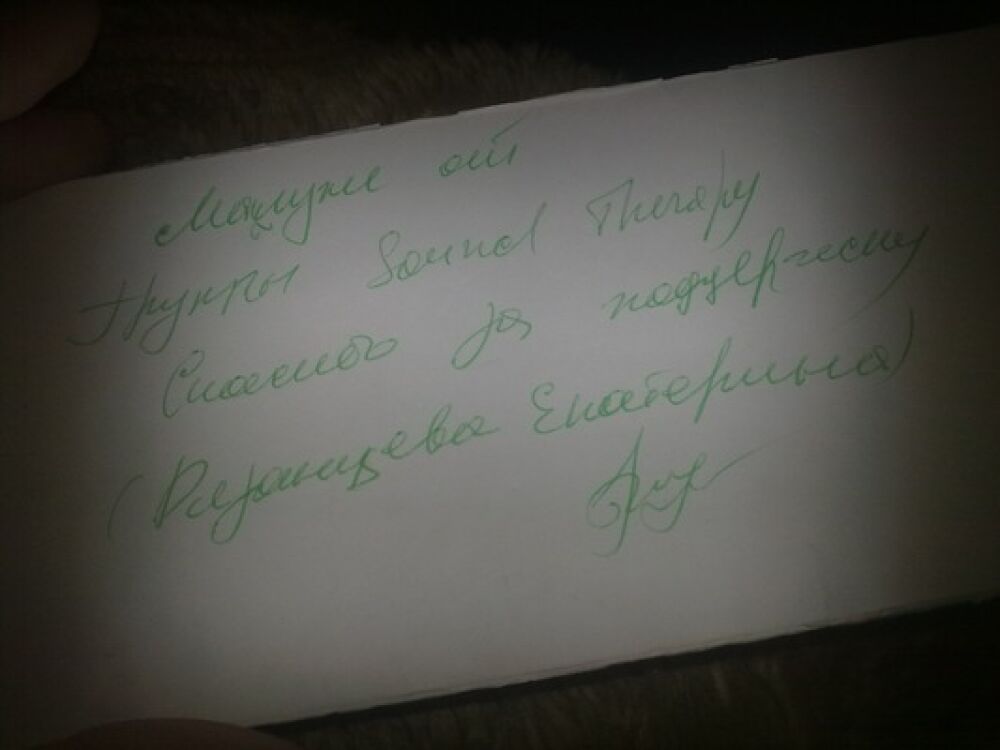 от
группы Sound Therapy
Спасибо за поддержку
(Рязанцева Екатерина)